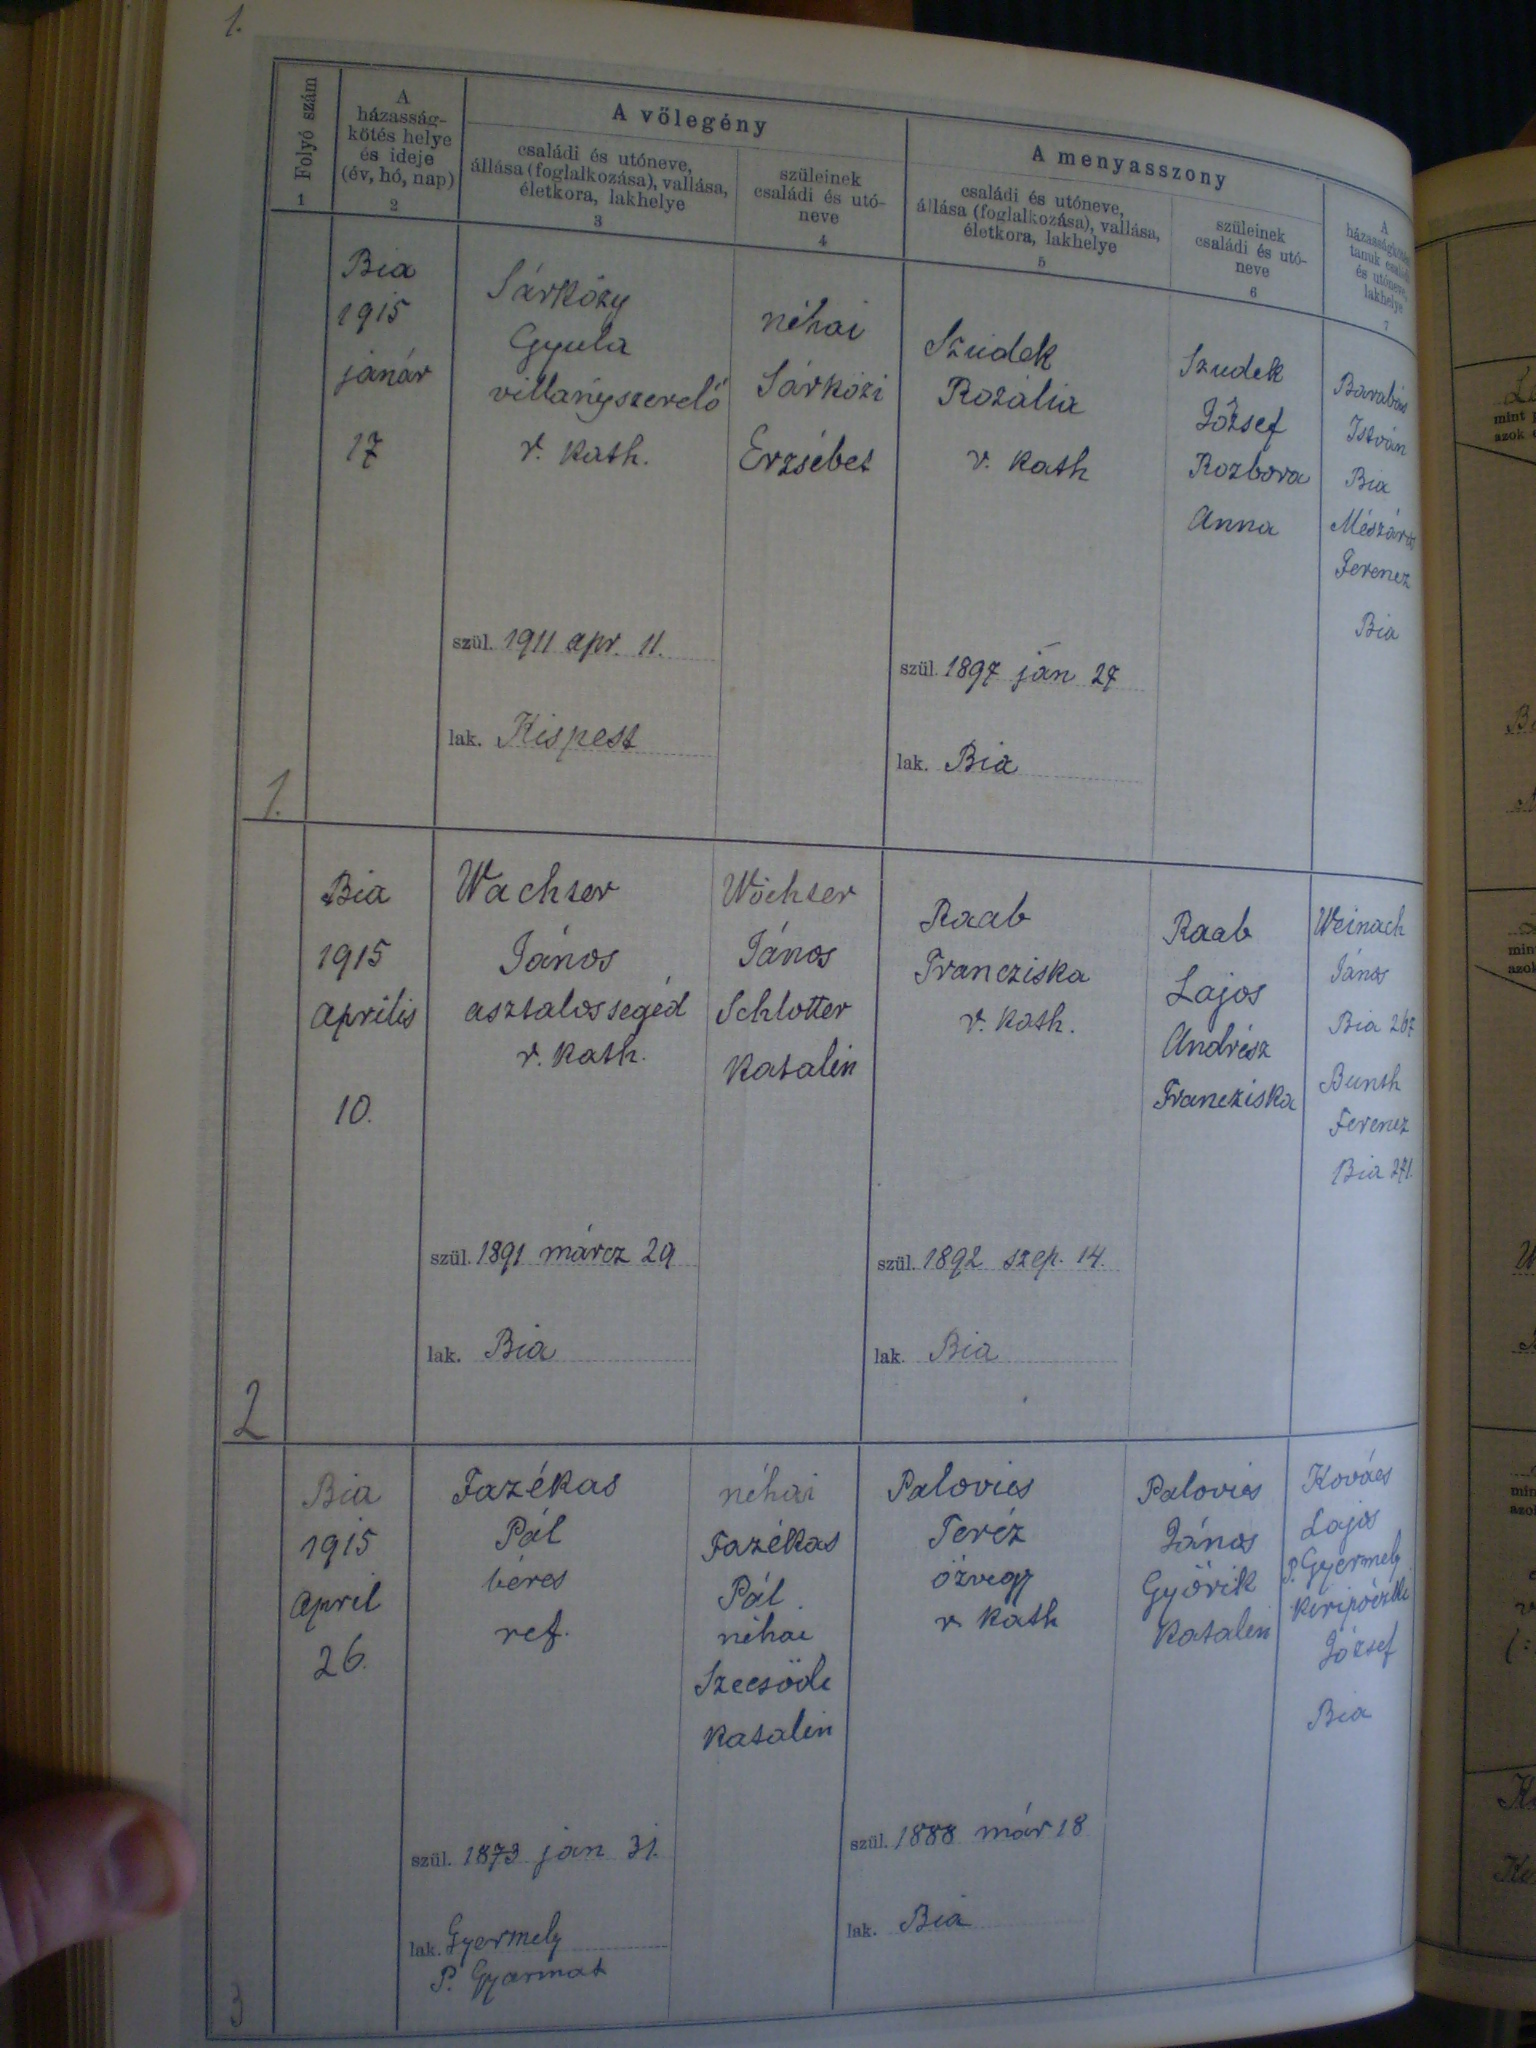 1.
Folyó szám
1
A
házasság-
kötés helye
és ideje
(év, hó, nap)
2
A vőlegény
családi és utóneve,
állása (foglalkozása), vallása,
életkora, lakhelye
3
szüleinek
családi és utó-
neve
4
A menyasszony
családi és utóneve,
állása (foglalkozása), vallása,
életkora, lakhelye
5
szüleinek
családi és utó-
neve
6
A
tanuk
és utóneve,
lakhelye
7
1.
Bia
1915
január
17
Sárközy
Gyula
villanyszerelő
r. kath.
szül. 1911 apr. 11.
lak. Kispest
néhai
Sárközi
Erzsébet
Szudek
Rozália
r. kath
szül. 1897 ján 27
lak. Bia
Szudek
József
Rozbora
Anna
Barabás
István
Bia
Mészáros
Ferencz
Bia
2
Bia
1915
Aprilis
10.
Wachter
János
asztalossegéd
r. kath.
szül. 1891 márcz 29
lak. Bia
Wöchter
János
Schlotter
Katalin
Raab
Francziska
r. kath.
szül. 1892 szep. 14.
lak. Bia
Raab
Lajos
Andrész
Francziska
Weinach
János
Bia 267
Bunth
Ferencz
Bia 271.
3
Bia
1915
April
26.
Fazékas
Pál
béres
ref.
szül. 1873 jan 31.
lak. Gyermely
P. Gyarmat
néhai
Fazékas
Pál.
néhai
Szecsödi
Katalin
Palovics
Teréz
özvegy
r. kath
szül. 1888 már 18
lak. Bia
Palovics
János
Györik
Katalin
Kovács
Lajos
P. Gyermely
József
Bia